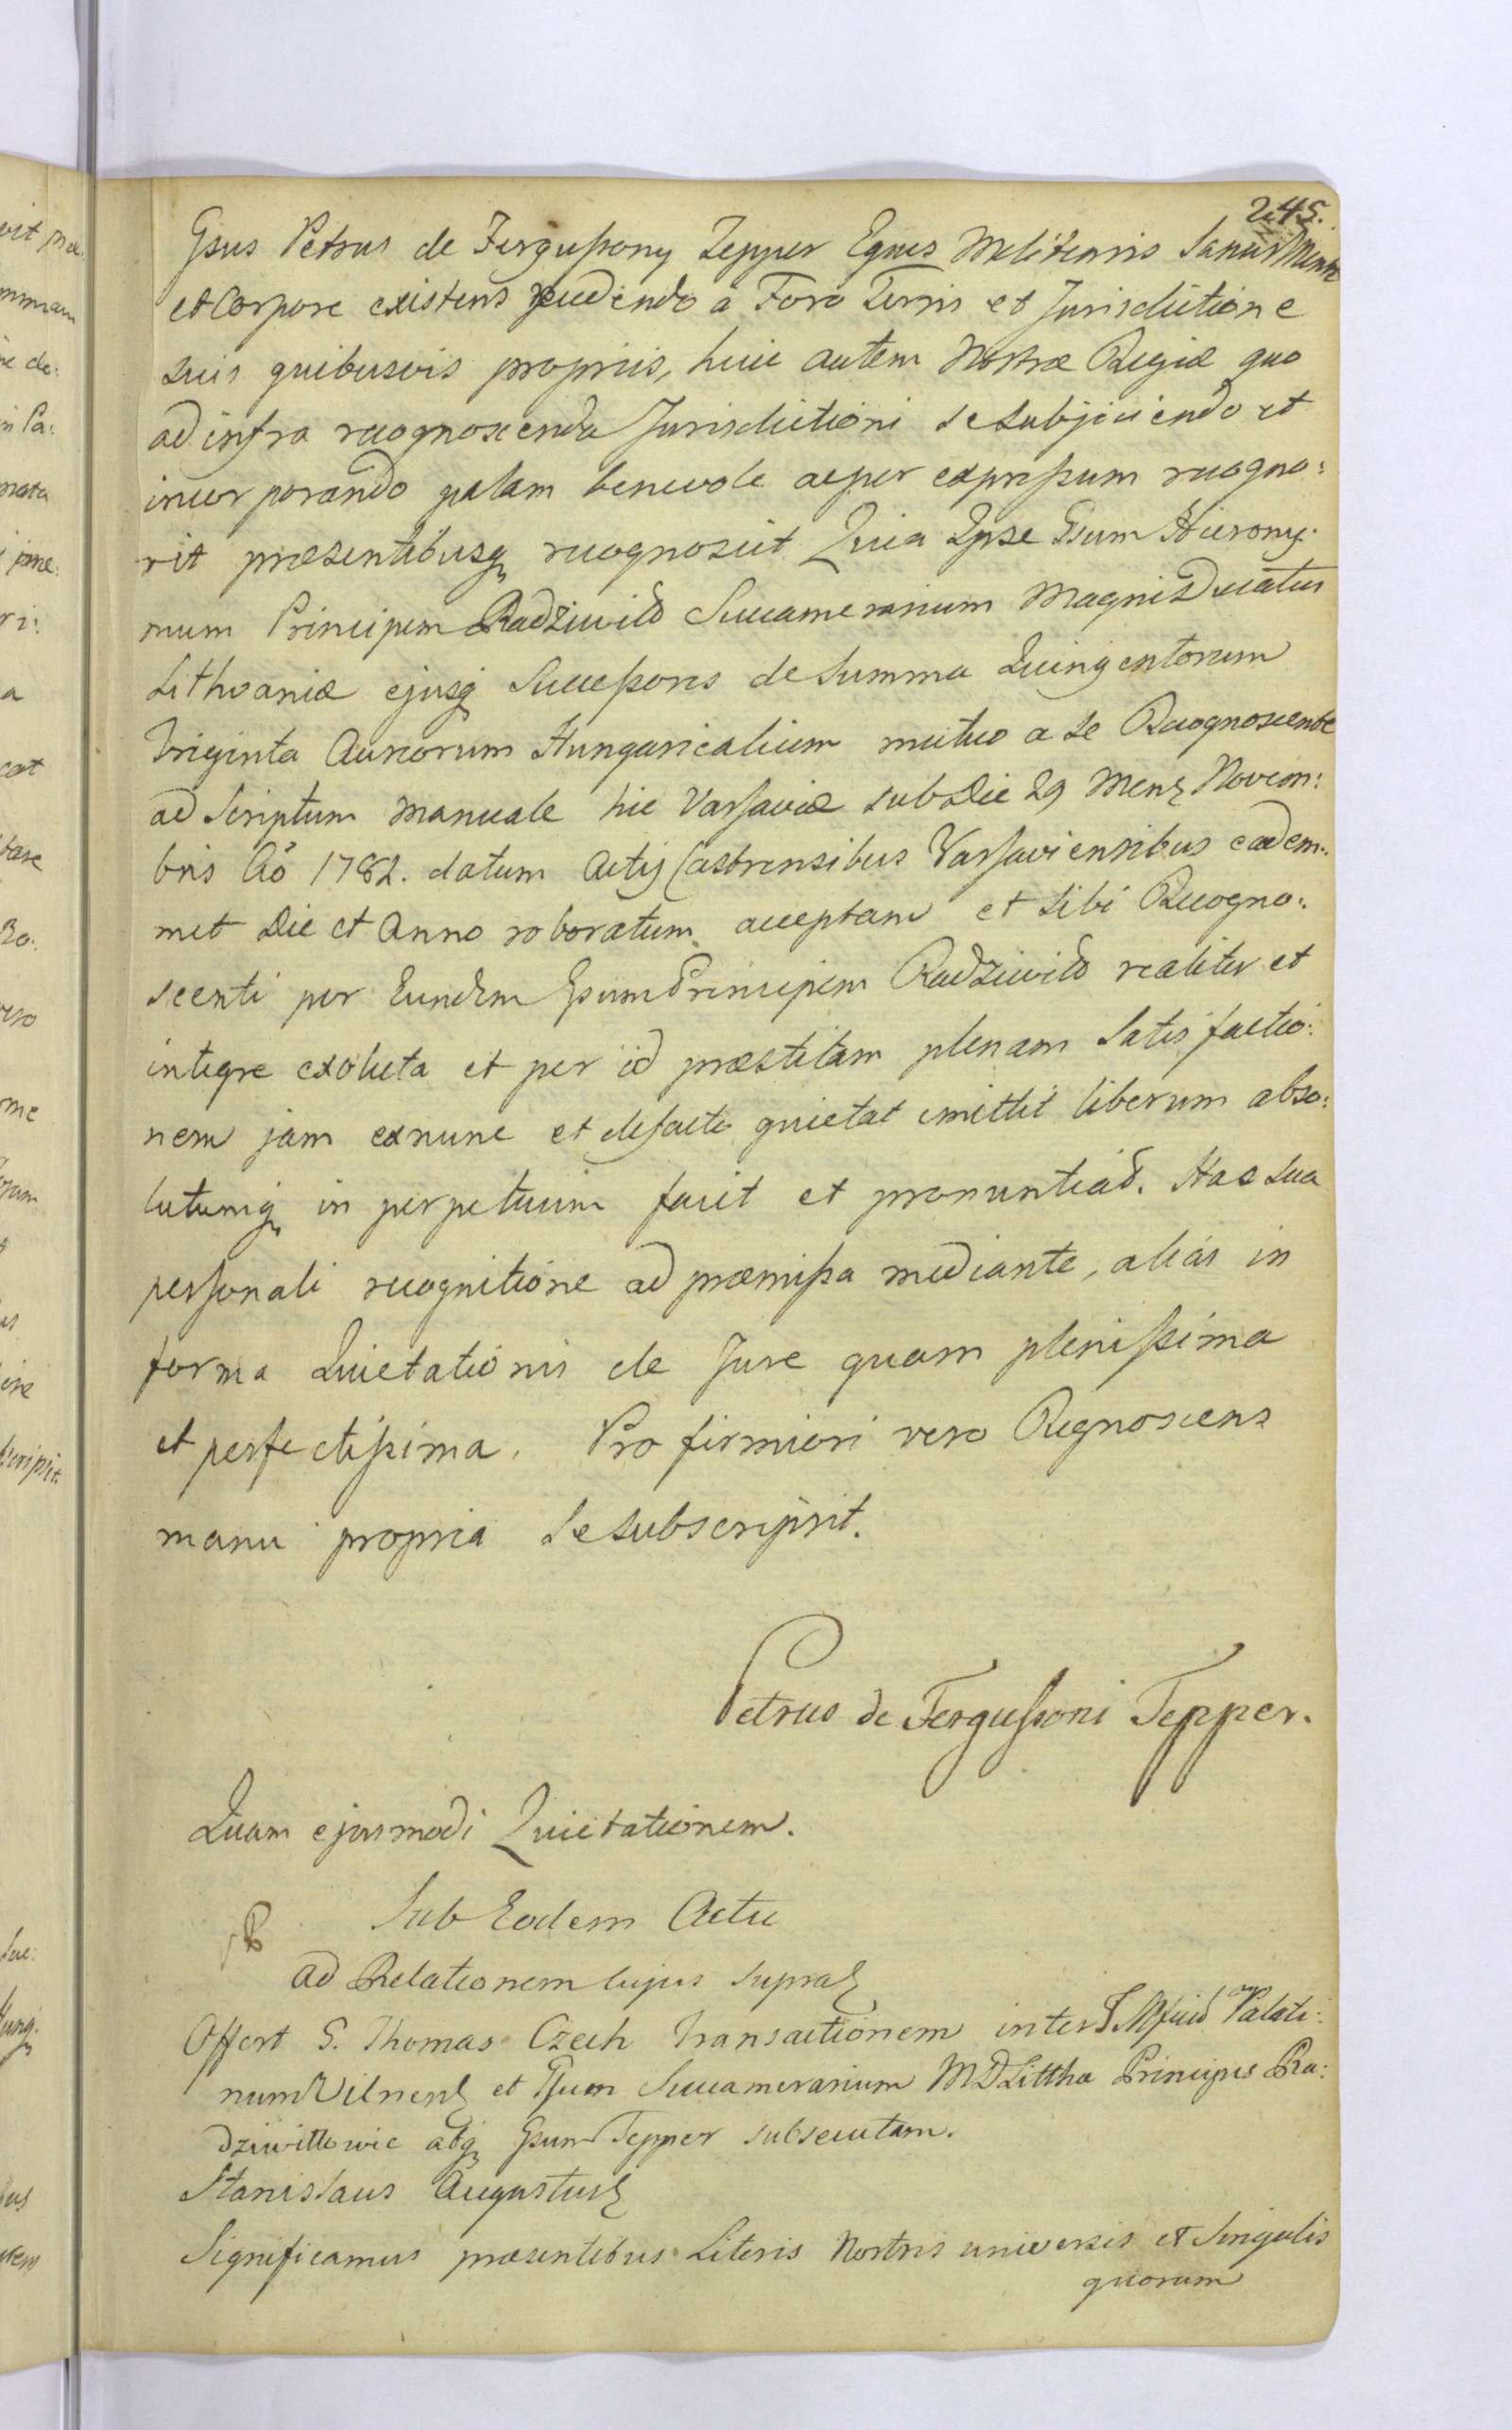 245.
Gsus Petrus de Fergußony Tepper Eques Melitensis Sanus Mente
et Corpore existens recedendo à Foro Terris et Jurisdictione
suis quibusvis propriis, huic autem Nostræ Regiæ quo
ad infra recognoscenda Jurisdictioni se subjiciendo et
incorporando palam benevole ac per expreßum recogno:
vit præsentibusq recognoscit Quia Ipse Gsum Hierony:
mum Principem Radziwiło Succamerarium Magni Ducatus
Lithvaniæ ejusq Succeßores de Summa Quingentorum
Triginta Aureorum Hungaricalium mutuo a se Recognoscente
ad Scriptum Manuale hic Varsaviæ sub Die 29 Mens Novem:
bris Ao 1782. datum Actis Castrensibus Varsaviensibus eadem:
met Die et Anno roboratum acceptam et sibi Recogno:
scenti per Eundem Gsum Principem Radziwiło realiter et
integre exoluta et per id præstitam plenam Satisfactio:
nem jam exnunc et defacto quietat emittit liberum abso:
lutumq in perpetuum facit et pronuntiat. Hac sua
personali recognitione ad præmißa mediante, alias in
forma Quietationis de Jure quam plenißima
et perfectißima. Pro firmiori vero Regnoscens
manu propria se subscripsit.
Petrus de Fergußoni Tepper.
Quam ejusmodi Quietationem.
Sub Eodem Actu
ad Relationem cujus supra
Offert G. Thomas Czech Transactionem inter Palati:
num Vilnens et Gsum Succamerarium M D Littha Principes Ra:
dziwiłłowie atq Gsum Tepper subsecutam.
Stanislaus Augustus
Significamus præsentibus Literis Nostris universis et Singulis
quorum